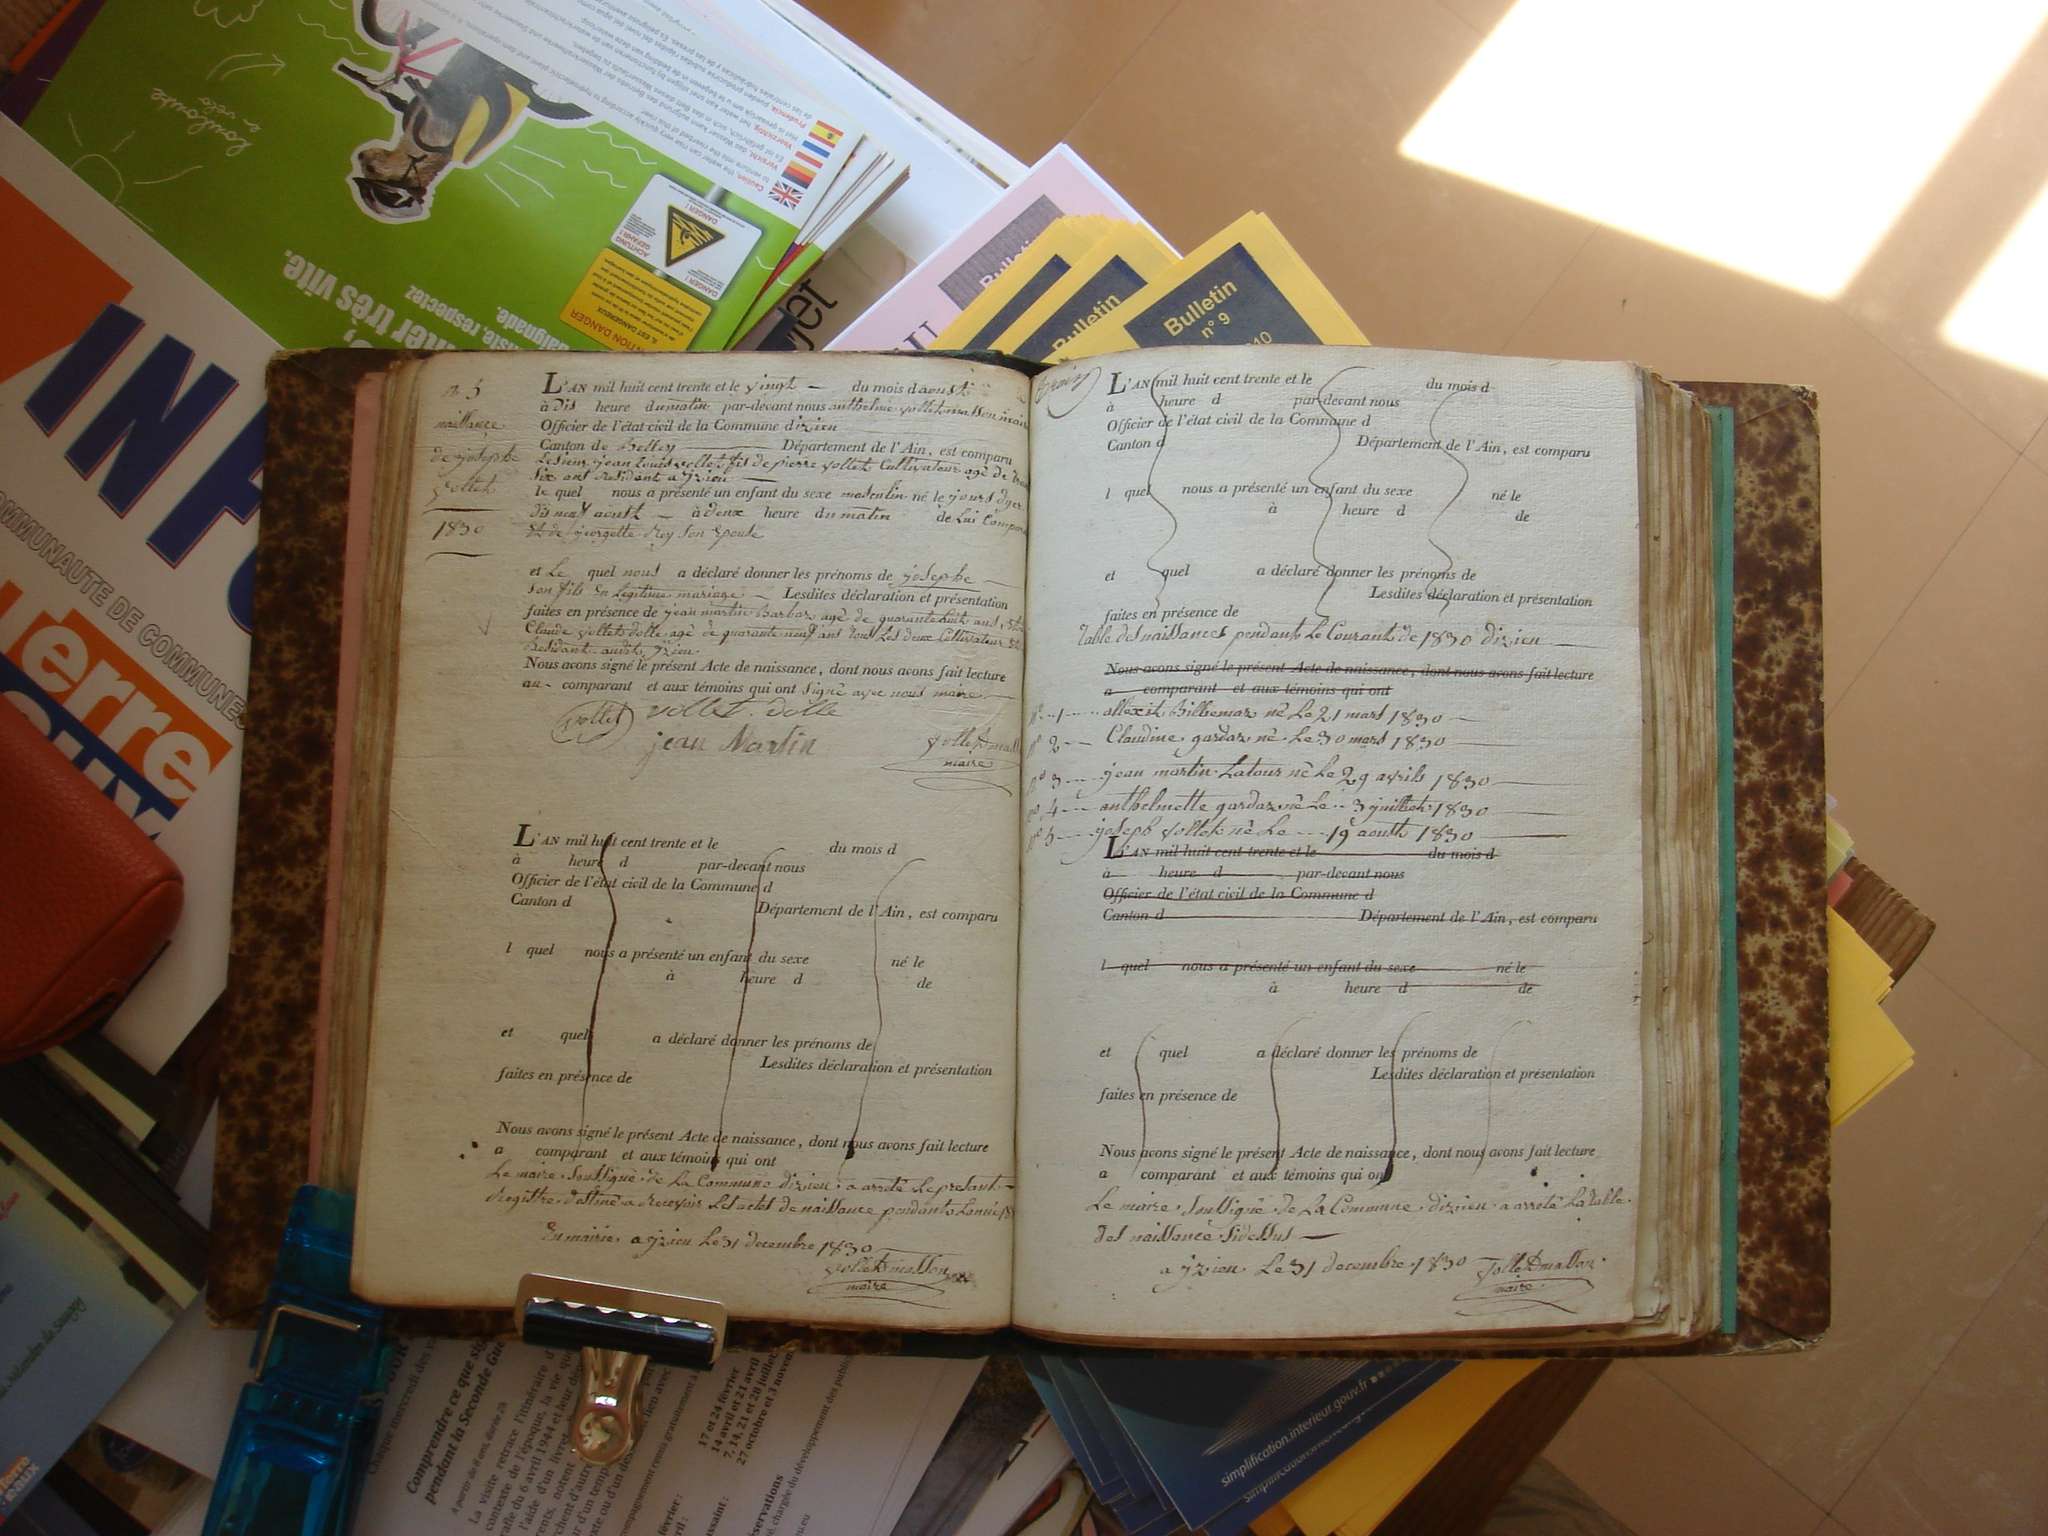 n 5
naissance
de josephe
vollet
1830
L'AN mil huit cent trente et le vingt du mois d aoust
à dis heure du matin par-devant nous anthelme vollet masson maire
Officier de l'état civil de la Commune dizieu
Canton de Belley Département de l'Ain, est comparu
Le sieur jean Louis vollet fils de pierre vollet Cultivateur agé de
six ans Residant a yzieu
le quel nous a présenté un enfant du sexe masculin né le jours dyer
dis neuf aoust à deux heure du matin de Lui
Et de georgette Rey son Epouse
et Le quel nous a déclaré donner les prénoms de josephe
son fils En Legitime mariage Lesdites déclaration et présentation
faites en présence de jean martin Barbar agé de quarante huit ans,
Claude vollet dolle agé de quarante neuf ans tous Les deux Cultivateur
Residant audit yzieu
Nous avons signé le présent Acte de naissance, dont nous avons fait lecture
au comparant et aux témoins qui ont signé avec nous maire
vollet vollet dolle
jean Martin
vollet mass
maire
L'AN mil huit cent trente et le du mois d
à heure d par-devant nous
Officier de l'état civil de la Commune d
Canton d Département de l'Ain, est comparu
l quel nous a présenté un enfant du sexe né le
à heure d de
et quel a déclaré donner les prénoms de
Lesdites déclaration et présentation
faites en présence de
Nous avons signé le présent Acte de naissance, dont nous avons fait lecture
a comparant et aux témoins qui ont
Le maire soussigné de La Commune dizieu a arrêté Le present
Registre destiné a Recevoir Les actes de naissance pendant Lannée
En mairie a yzieu Le 31 decembre 1830
vollet masson
maire
L'AN mil huit cent trente et le du mois d
à heure d par-devant nous
Officier de l'état civil de la Commune d
Canton d Département de l'Ain, est comparu
l quel nous a présenté un enfant du sexe né le
à heure d de
et quel a déclaré donner les prénoms de
Lesdites déclaration et présentation
faites en présence de
Table des naissances pendant le Courant de 1830 dizieu
Nous avons signé le présent Acte de naissance, dont nous avons fait lecture
a comparant et aux témoins qui ont
n° 1 allexit Billiemaz né Le 21 mars 1830
n° 2 Claudine gardaz né Le 30 mars 1830
n° 3 jean martin Latour né Le 29 avrils 1830
n° 4 anthelmette gardaz né Le 3 juillet 1830
n° 5 joseph vollet né Le 19 aoust 1830
L'AN mil huit cent trente et le du mois d
à heure d par-devant nous
Officier de l'état civil de la Commune d
Canton d Département de l'Ain, est comparu
l quel nous a présenté un enfant du sexe né le
à heure d de
et quel a déclaré donner les prénoms de
Lesdites déclaration et présentation
faites en présence de
Nous avons signé le présent Acte de naissance, dont nous avons fait lecture
a comparant et aux témoins qui ont
Le maire soussigné de La Commune dizieu a arrêté La Table
des naissance sidessus
a yzieu Le 31 decembre 1830 vollet masson
maire
Bulletin
n° 9
Bulletin
INFO
COMMUNAUTE DE COMMUNES
erre
toulouse
à vélo
très vite.
respectez
DANGER !
ACHTUNG
GEFAHR !
DANGER !
Caution, the water can rise very quickly according to hydroelectric plant and dam operations
Prudencia.
Comprendre ce que
pendant la Seconde Gue
La visite retrace l'itinéraire d
contexte de l'époque, la vie qu
17 et 24 février
14 avril et 21 avril
7, 14, 21 et 28 juillet
27 octobre et 3 novem
chargée du développement des publics
simplification.interieur.gouv.fr